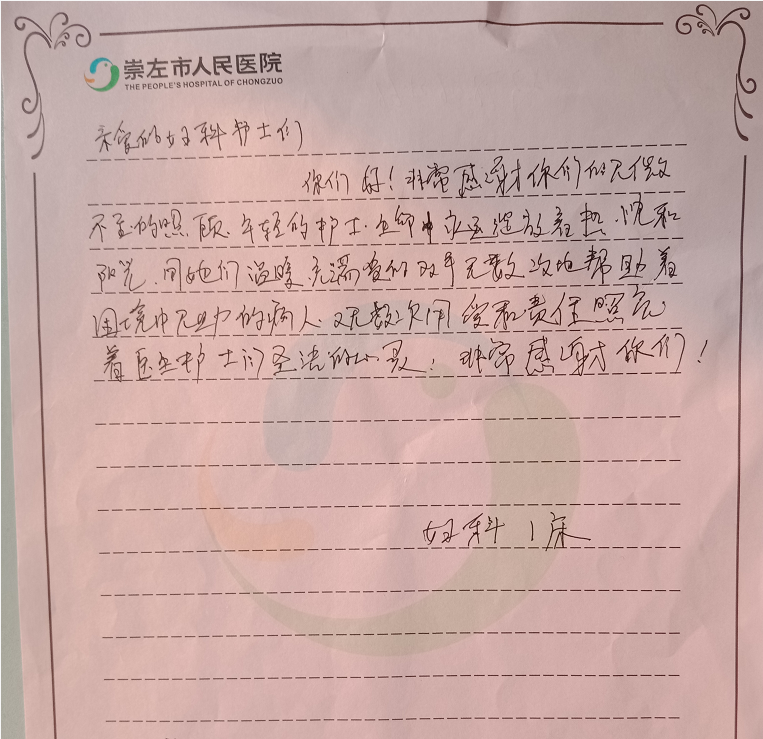 崇左市人民医院
THE PEOPLE'S HOSPITAL OF CHONGZUO
亲爱的妇科护士们
你们好！非常感谢你们的无微
不至的照顾.年轻的护士.生命中永远绽放着热忱和
阳光.用她们温暖充满爱的双手无数次地帮助着
困境中无助的病人.又无数次用爱和责任照亮
着医生护士们圣洁的心灵！非常感谢你们！
妇科1床